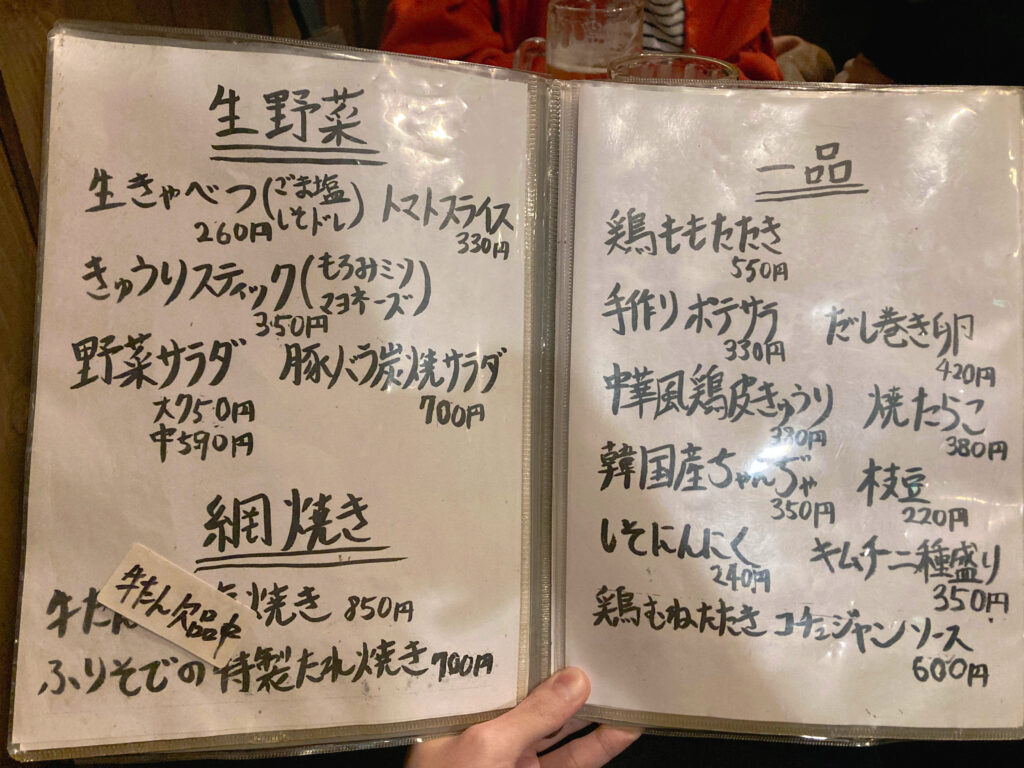 生野菜
生きゃべつ(ごま塩 しそドレ) トマトスライス
260円 330円
きゅうりスティック(もろみミソ マヨネーズ)
350円
野菜サラダ 豚バラ炭焼サラダ
大750円 700円
中590円
網焼き
牛た 焼き 850円
牛たん欠品中
ふりそでの特製たれ焼き 700円
一品
鶏ももたたき
550円
手作りポテサラ だし巻き卵
330円 420円
中華風鶏皮きゅうり 焼たらこ
380円 380円
韓国産ちゃんぢゃ 枝豆
350円 220円
しそにんにく キムチ二種盛り
240円 350円
鶏むねたたき コチュジャンソース
600円